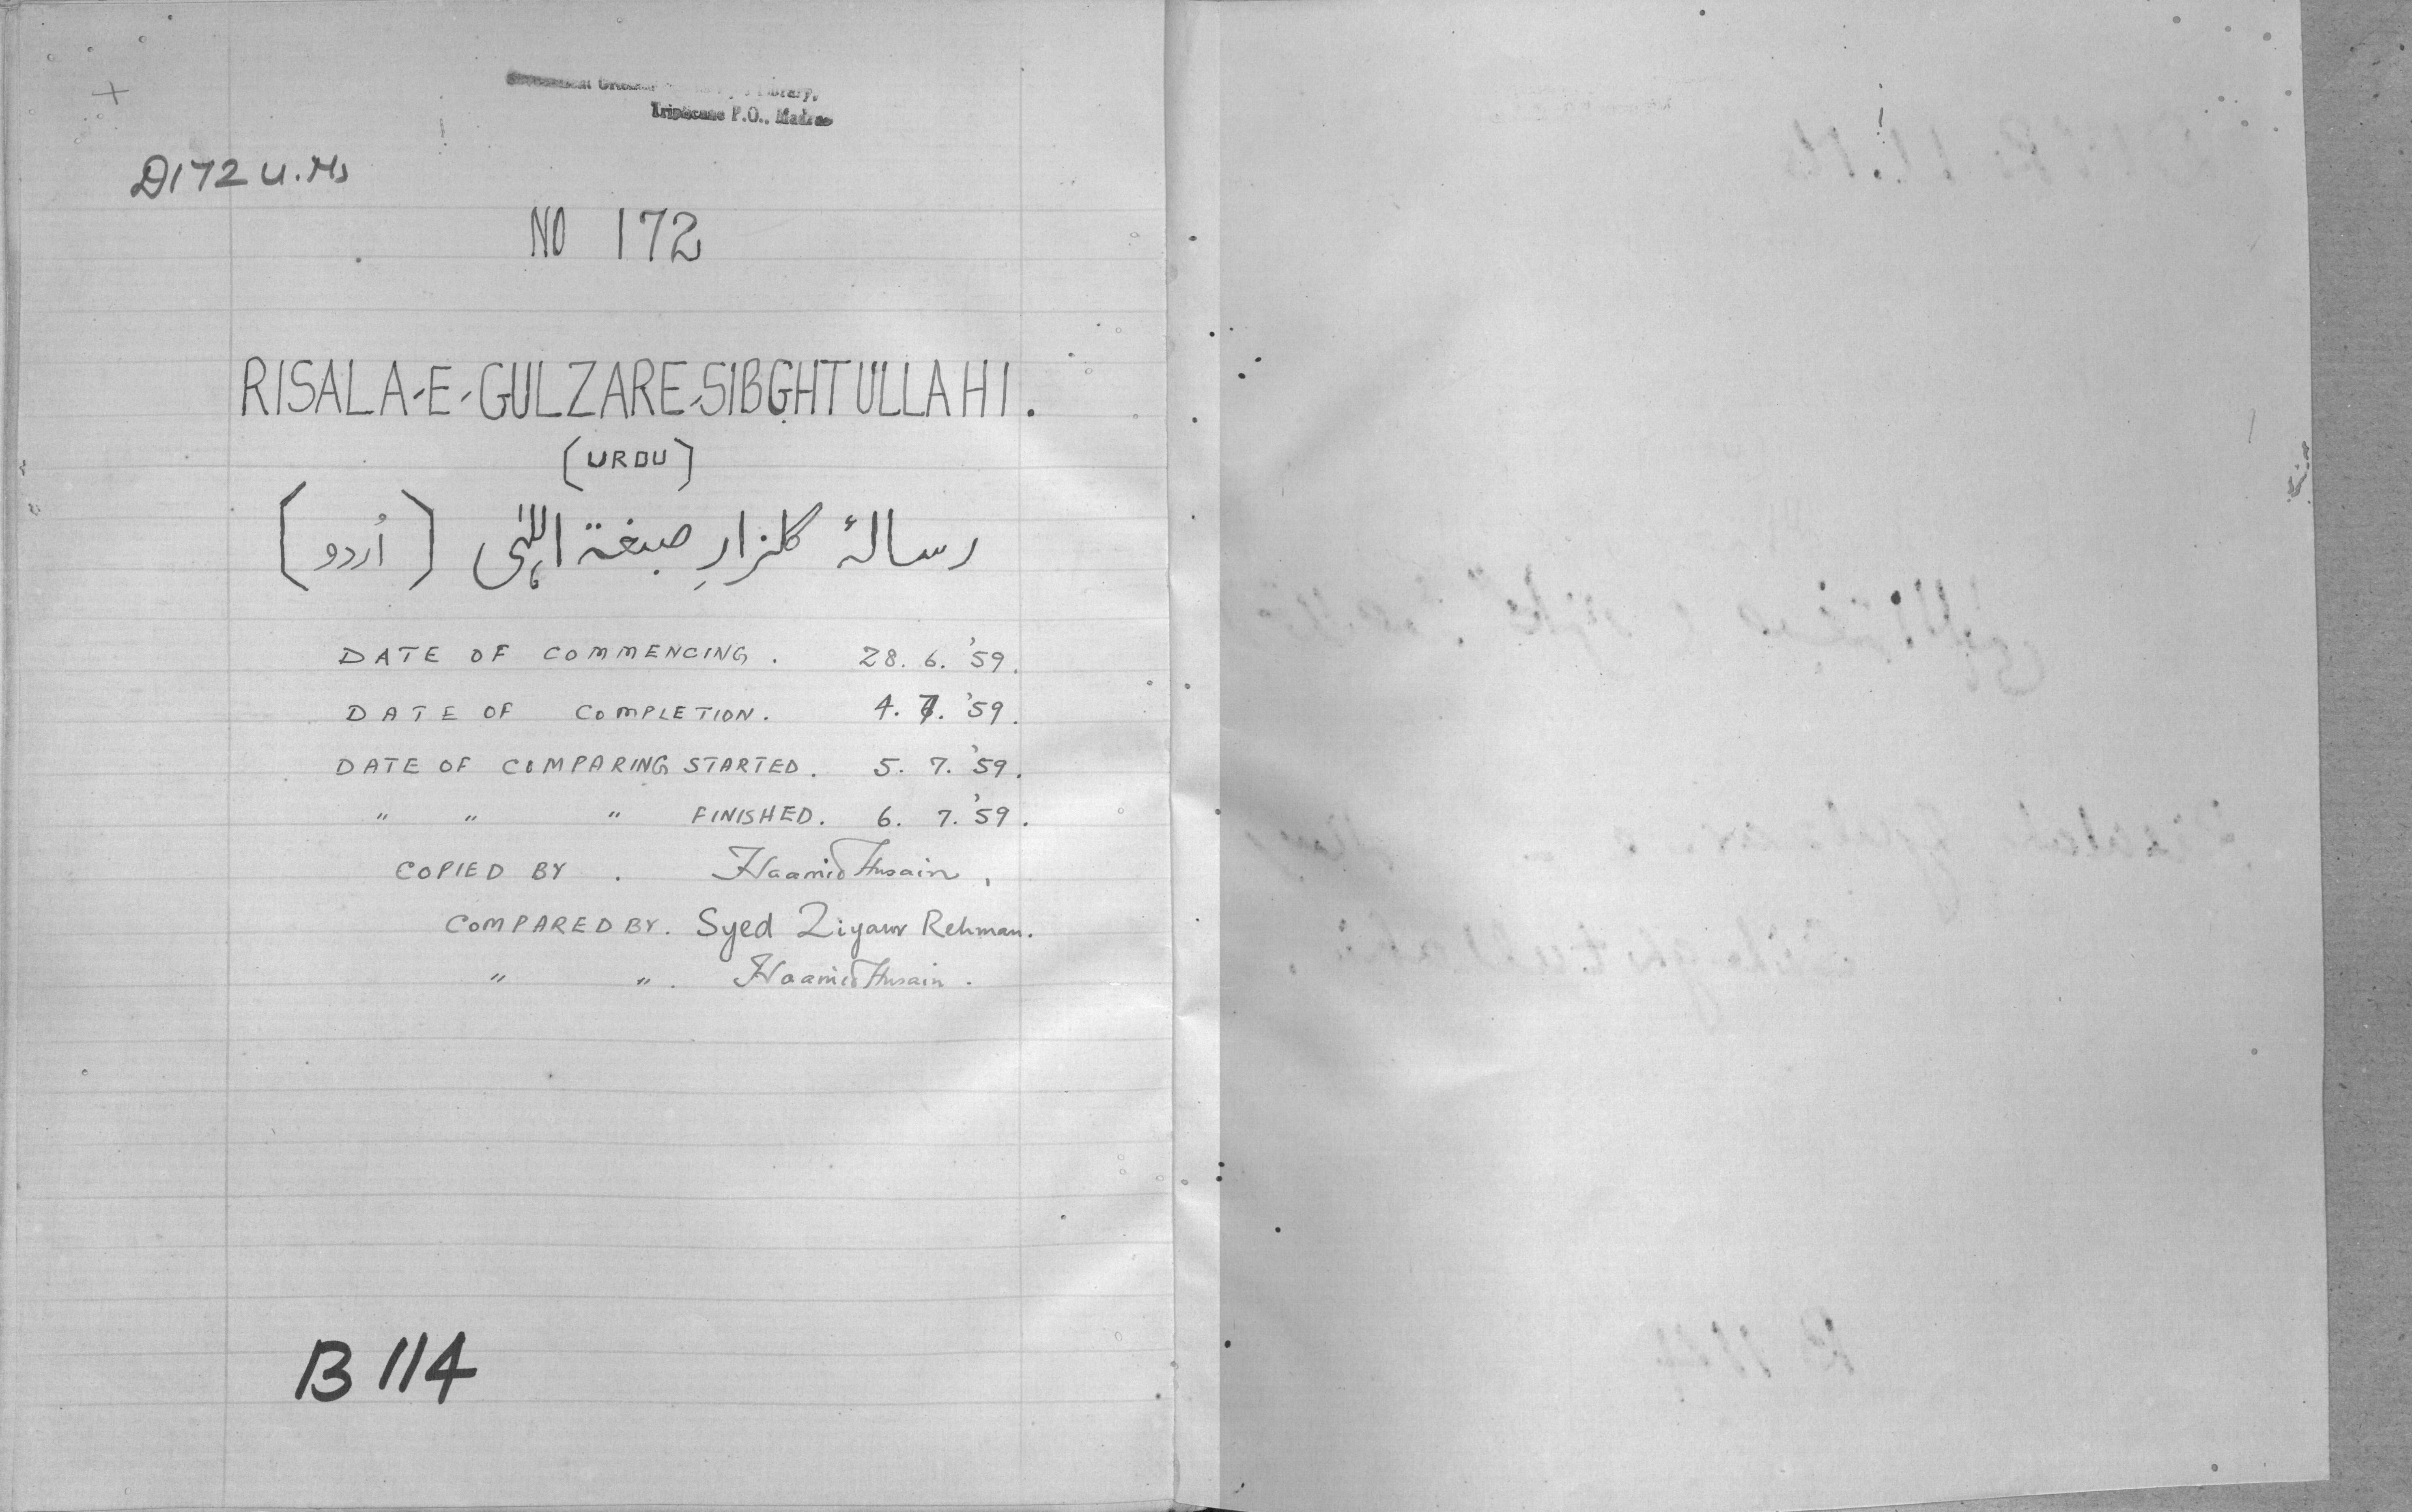 Library,
Triplicane P.O., Madras
D172 U.Ms
NO 172
RISALA-E-GULZARE-SIBGHTULLAHI.
(URDU)
رسالۂ گلزارِ صبغۃ اللّٰہی (اُردو)
DATE OF COMMENCING. 28. 6. '59.
DATE OF COMPLETION. 4. 7. '59.
DATE OF COMPARING STARTED. 5. 7. '59.
" " " FINISHED. 6. 7. '59.
COPIED BY . Haamid Husain,
COMPARED BY. Syed Ziyaur Rehman.
" " . Haamid Husain.
B 114